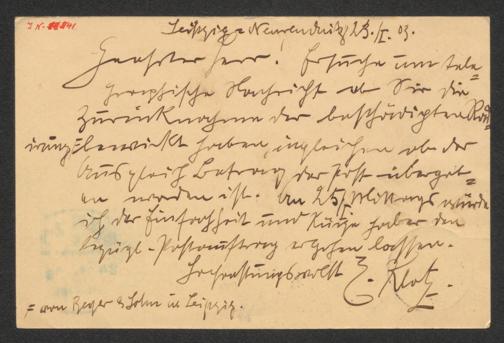 Leipzig-Neureudnitz 23./I. 03.
Geehrter Herr. Ersuche um tele-
graphische Nachricht ob Sie die
Zurücknahme der beschädigten
bewirkt haben, ingleichen ob der
Ausgleich Betrag der Post überge-
en worden ist. Am 25/I Mittags würde
ich der Einfachheit und Kürze halber den
bezügl. Postauftrag ergehen lassen.
Hochachtungsvollst
E. Klotz.
= von Beyer & Sohn in Leipzig.